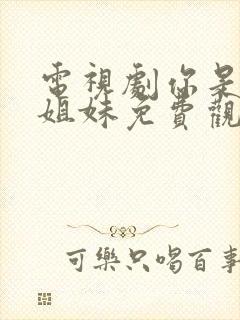 電視劇你是
姐妹免費觀
可樂只喝百事